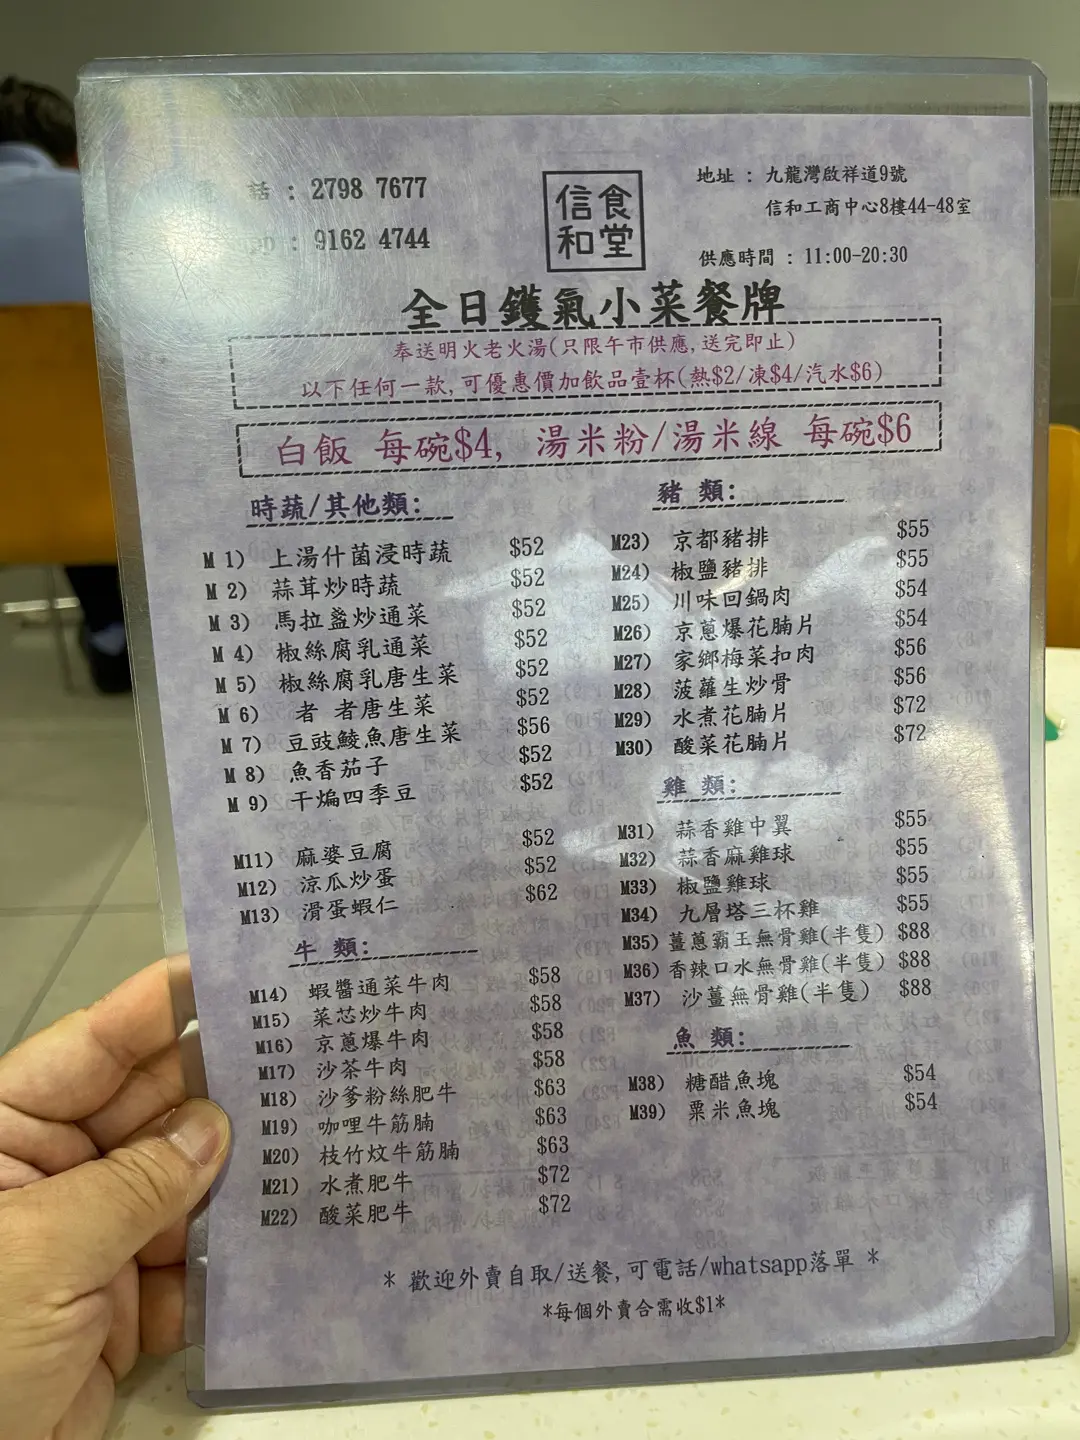 話 : 2798 7677
: 9162 4744
信食
和堂
地址 : 九龍灣啟祥道9號
信和工商中心8樓44-48室
供應時間 : 11:00-20:30
全日鑊氣小菜餐牌
奉送明火老火湯(只限午市供應,送完即止)
以下任何一款,可優惠價加飲品壹杯(熱$2/凍$4/汽水$6)
白飯 每碗$4, 湯米粉/湯米線 每碗$6
時蔬/其他類:
M 1) 上湯什菌浸時蔬 $52
M 2) 蒜茸炒時蔬 $52
M 3) 馬拉盞炒通菜 $52
M 4) 椒絲腐乳通菜 $52
M 5) 椒絲腐乳唐生菜 $52
M 6) 者 者唐生菜 $52
M 7) 豆豉鯪魚唐生菜 $56
M 8) 魚香茄子 $52
M 9) 干煸四季豆 $52
M11) 麻婆豆腐 $52
M12) 涼瓜炒蛋 $52
M13) 滑蛋蝦仁 $62
牛 類:
M14) 蝦醬通菜牛肉 $58
M15) 菜芯炒牛肉 $58
M16) 京蔥爆牛肉 $58
M17) 沙茶牛肉 $58
M18) 沙爹粉絲肥牛 $63
M19) 咖哩牛筋腩 $63
M20) 枝竹炆牛筋腩 $63
M21) 水煮肥牛 $72
M22) 酸菜肥牛 $72
豬 類:
M23) 京都豬排 $55
M24) 椒鹽豬排 $55
M25) 川味回鍋肉 $54
M26) 京蔥爆花腩片 $54
M27) 家鄉梅菜扣肉 $56
M28) 菠蘿生炒骨 $56
M29) 水煮花腩片 $72
M30) 酸菜花腩片 $72
雞 類:
M31) 蒜香雞中翼 $55
M32) 蒜香麻雞球 $55
M33) 椒鹽雞球 $55
M34) 九層塔三杯雞 $55
M35) 薑蔥霸王無骨雞(半隻) $88
M36) 香辣口水無骨雞(半隻) $88
M37) 沙薑無骨雞(半隻) $88
魚 類:
M38) 糖醋魚塊 $54
M39) 粟米魚塊 $54
* 歡迎外賣自取/送餐,可電話/whatsapp落單 *
*每個外賣合需收$1*